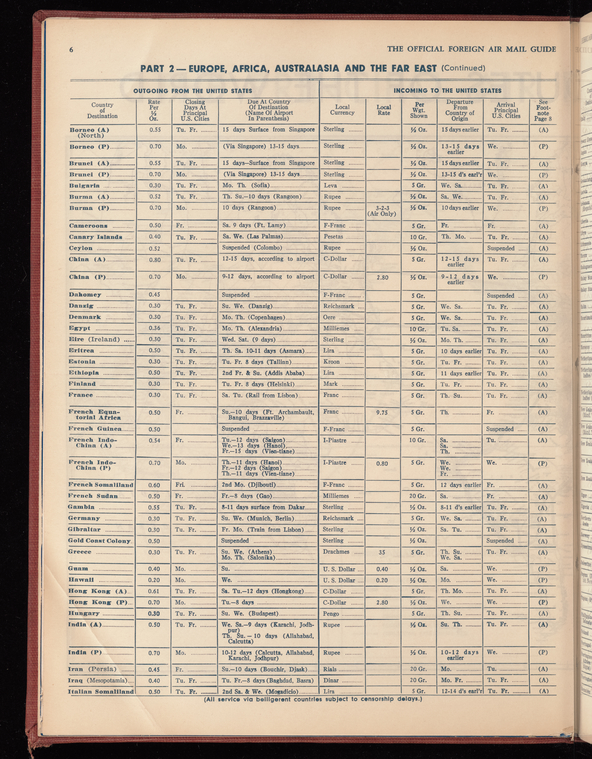 6 THE OFFICIAL FOREIGN AIR MAIL GUIDE
PART 2—EUROPE, AFRICA, AUSTRALASIA AND THE FAR EAST (Continued)
OUTGOING FROM THE UNITED STATES INCOMING TO THE UNITED STATES
Country of Destination | Rate Per ½ Oz. | Closing Days At Principal U.S. Cities | Due At Country Of Destination (Name Of Airport In Parenthesis) | Local Currency | Local Rate | Per Wgt. Shown | Departure From Country of Origin | Arrival Principal U.S. Cities | See Foot-note Page 8
Borneo (A) (North) 0.55 Tu. Fr. 15 days Surface from Singapore Sterling ½ Oz. 15 days earlier Tu. Fr. (A)
Borneo (P) 0.70 Mo. (Via Singapore) 13-15 days Sterling ½ Oz. 13-15 days earlier We. (P)
Brunei (A) 0.55 Tu. Fr. 15 days—Surface from Singapore Sterling ½ Oz. 15 days earlier Tu. Fr. (A)
Brunei (P) 0.70 Mo. (Via Singapore) 13-15 days Sterling ½ Oz. 13-15 d's earl'r We. (P)
Bulgaria 0.30 Tu. Fr. Mo. Th. (Sofia) Leva 5 Gr. We. Sa. Tu. Fr. (A)
Burma (A) 0.52 Tu. Fr. Th. Su.—10 days (Rangoon) Rupee ½ Oz. Sa. We. Tu. Fr. (A)
Burma (P) 0.70 Mo. 10 days (Rangoon) Rupee 5-2-3 (Air Only) ½ Oz. 10 days earlier We. (P)
Cameroons 0.50 Fr. Sa. 9 days (Ft. Lamy) F-Franc 5 Gr. Fr. Fr. (A)
Canary Islands 0.40 Tu. Fr. Sa. We. (Las Palmas) Pesetas 10 Gr. Th. Mo. Tu. Fr. (A)
Ceylon 0.52 Suspended (Colombo) Rupee ½ Oz. Suspended (A)
China (A) 0.80 Tu. Fr. 12-15 days, according to airport C-Dollar 5 Gr. 12-15 days earlier Tu. Fr. (A)
China (P) 0.70 Mo. 9-12 days, according to airport C-Dollar 2.80 ½ Oz. 9-12 days earlier We. (P)
Dahomey 0.45 Suspended F-Franc 5 Gr. Suspended (A)
Danzig 0.30 Tu. Fr. Su. We. (Danzig) Reichsmark 5 Gr. We. Sa. Tu. Fr. (A)
Denmark 0.30 Tu. Fr. Mo. Th. (Copenhagen) Oere 5 Gr. We. Sa. Tu. Fr. (A)
Egypt 0.36 Tu. Fr. Mo. Th. (Alexandria) Milliemes 10 Gr. Tu. Sa. Tu. Fr. (A)
Eire (Ireland) 0.30 Tu. Fr. Wed. Sat. (9 days) Sterling ½ Oz. Mo. Th. Tu. Fr. (A)
Eritrea 0.50 Tu. Fr. Th. Sa. 10-11 days (Asmara) Lira 5 Gr. 10 days earlier Tu. Fr. (A)
Estonia 0.30 Tu. Fr. Tu. Fr. 8 days (Tallinn) Kroon 5 Gr. Tu. Fr. Tu. Fr. (A)
Ethiopia 0.50 Tu. Fr. 2nd Fr. & Su. (Addis Ababa) Lira 5 Gr. 11 days earlier Tu. Fr. (A)
Finland 0.30 Tu. Fr. Tu. Fr. 8 days (Helsinki) Mark 5 Gr. Tu. Fr. Tu. Fr. (A)
France 0.30 Tu. Fr. Sa. Tu. (Rail from Lisbon) Franc 5 Gr. Th. Su. Tu. Fr. (A)
French Equatorial Africa 0.50 Fr. Su.—10 days (Ft. Archambault, Bangui, Brazzaville) Franc 9.75 5 Gr. Th. Fr. (A)
French Guinea 0.50 Suspended F-Franc 5 Gr. Suspended (A)
French Indo-China (A) 0.54 Fr. Tu.—12 days (Saigon) We.—13 days (Hanoi) Fr.—15 days (Vien-tiane) I-Piastre 10 Gr. Sa. Sa. Th. Tu. (A)
French Indo-China (P) 0.70 Mo. Th.—11 days (Hanoi) Fr.—12 days (Saigon) Th.—11 days (Vien-tiane) I-Piastre 0.80 5 Gr. We. We. Fr. We. (P)
French Somaliland 0.60 Fri. 2nd Mo. (Djibouti) F-Franc 5 Gr. 12 days earlier Fr. (A)
French Sudan 0.50 Fr. Fr.—8 days (Gao) Milliemes 20 Gr. Sa. Fr. (A)
Gambia 0.55 Tu. Fr. 8-11 days surface from Dakar Sterling ½ Oz. 8-11 d's earlier Tu. Fr. (A)
Germany 0.30 Tu. Fr. Su. We. (Munich, Berlin) Reichsmark 5 Gr. We. Sa. Tu. Fr. (A)
Gibraltar 0.30 Tu. Fr. Fr. Mo. (Train from Lisbon) Sterling ½ Oz. Sa. Tu. Tu. Fr. (A)
Gold Coast Colony 0.50 Suspended Sterling ½ Oz. Suspended (A)
Greece 0.30 Tu. Fr. Su. We. (Athens) Mo. Th. (Salonika) Drachmes 35 5 Gr. Th. Su. We. Sa. Tu. Fr. (A)
Guam 0.40 Mo. Su. U. S. Dollar 0.40 ½ Oz. Sa. We. (P)
Hawaii 0.20 Mo. We. U. S. Dollar 0.20 ½ Oz. Mo. We. (P)
Hong Kong (A) 0.61 Tu. Fr. Sa. Tu.—12 days (Hongkong) C-Dollar 5 Gr. Th. Mo. Tu. Fr. (A)
Hong Kong (P) 0.70 Mo. Tu.—8 days C-Dollar 2.80 ½ Oz. We. We. (P)
Hungary 0.30 Tu. Fr. Su. We. (Budapest) Pengo 5 Gr. Th. Su. Tu. Fr. (A)
India (A) 0.50 Tu. Fr. We. Sa.—9 days (Karachi, Jodhpur) Th. Su.—10 days (Allahabad, Calcutta) Rupee ½ Oz. Su. Th. Tu. Fr. (A)
India (P) 0.70 Mo. 10-12 days (Calcutta, Allahabad, Karachi, Jodhpur) Rupee ½ Oz. 10-12 days earlier We. (P)
Iran (Persia) 0.45 Fr. Su.—10 days (Bouchir, Djask) Rials 20 Gr. Mo. Tu. (A)
Iraq (Mesopotamia) 0.40 Tu. Fr. Tu. Fr.—8 days (Baghdad, Basra) Dinar 20 Gr. Mo. Fr. Tu. Fr. (A)
Italian Somaliland 0.50 Tu. Fr. 2nd Sa. & We. (Mogadicio) Lira 5 Gr. 12-14 d's earl'r Tu. Fr. (A)
(All service via belligerent countries subject to censorship delays.)